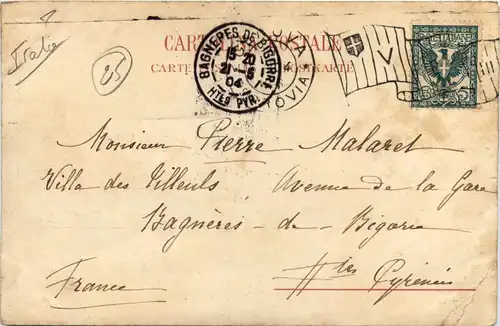 Italie
25
CARTE POSTALE
CARTE POSTKARTE
BAGNERES DE BIGORRE
15 20
21 - 5
04
HTES PYR.
V
Monsieur Pierre Malaret
Villa des Tilleuls Avenue de la Gare
Bagnères-de-Bigorre
France Htes Pyrénées